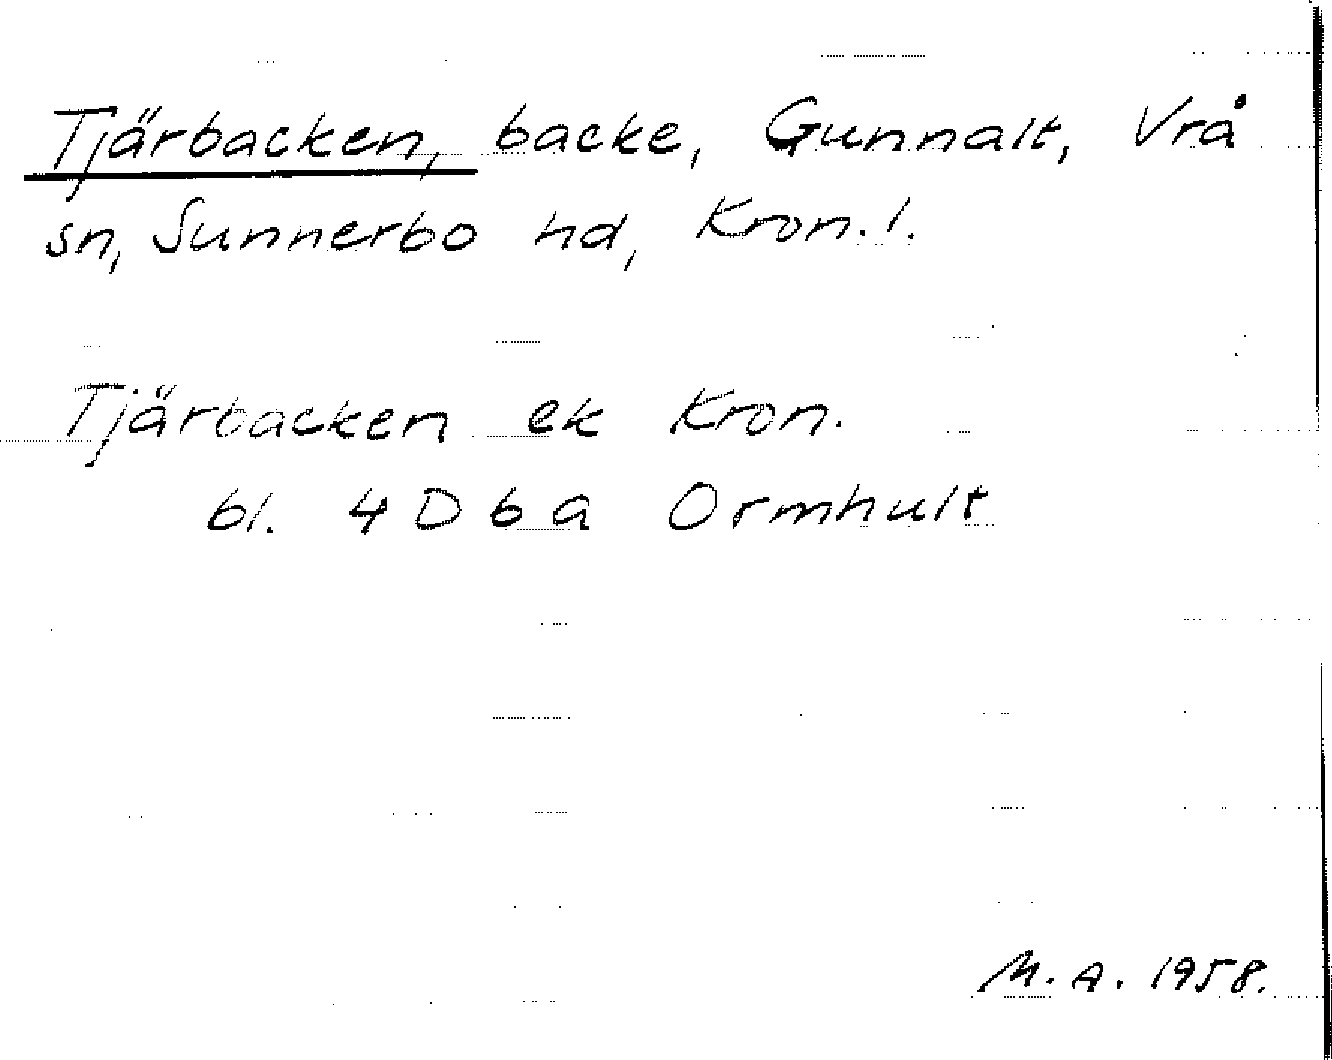 Tjärbacken, backe, Gunnalt, Vrå
sn, Sunnerbo hd, Kron. l.
Tjärbacken ek Kron.
bl. 4 D 6 a Ormhult
M. A. 1958.